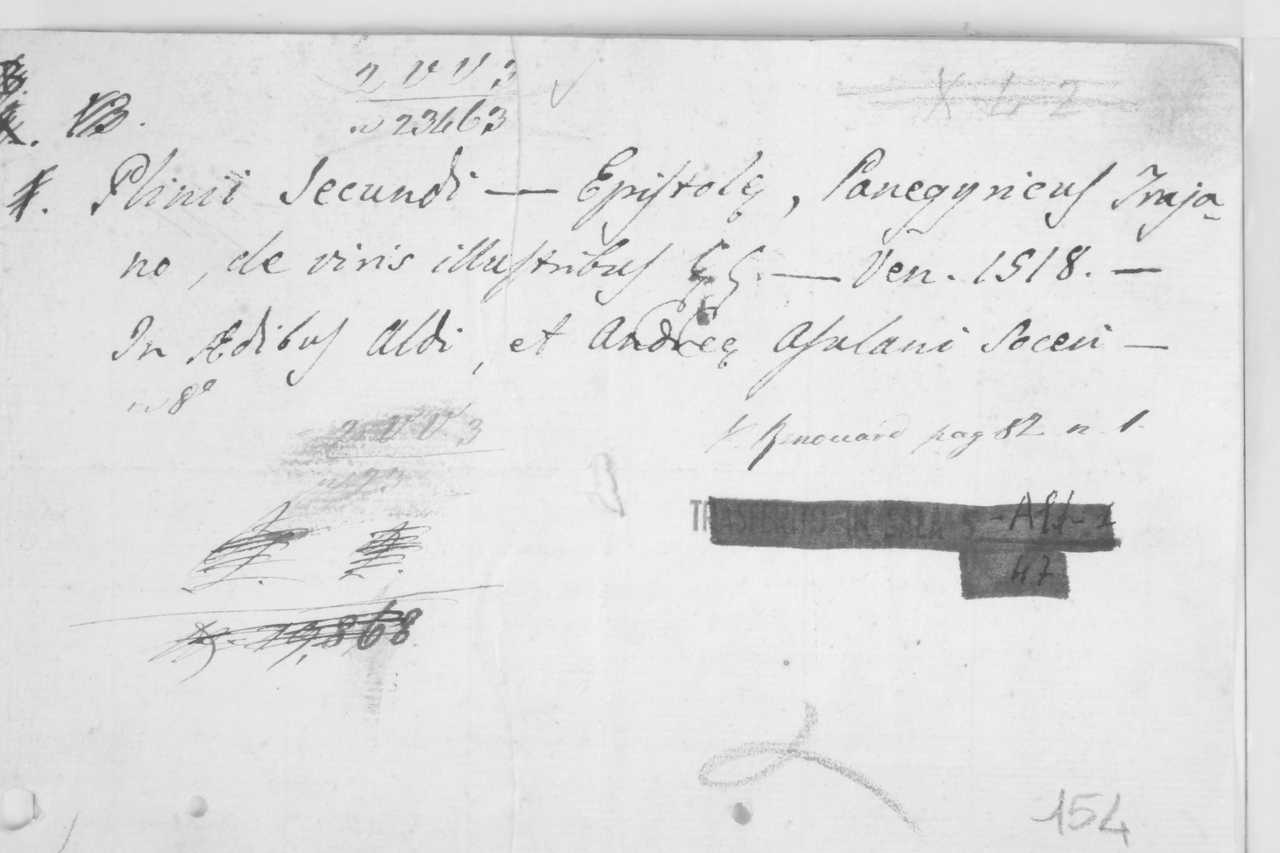 2 V V 3
X 4 2
VB.
n 23463
Plinii Secundi — Epistolę, Panegyricus Traja-
no, de viris illustribus — Ven. 1518. —
In Ædibus Aldi, et Andreę Asulani Soceri —
in 8°
2 V V 3
V Renouard pag 82 n. 1.
TRASFERITO IN SALA
47
154